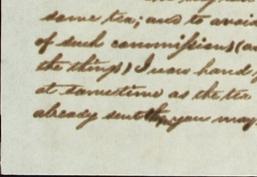 some tea; and to avoid
of such commissions (an
the things) I now hand
at same time as the tea
already sent you may